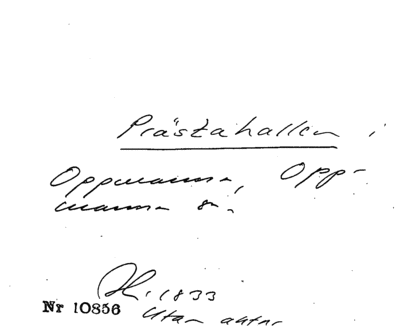 Prästahallen i
Oppmanna, Opp-
manna sn.
H. 1833
Utan autor
Nr 10856